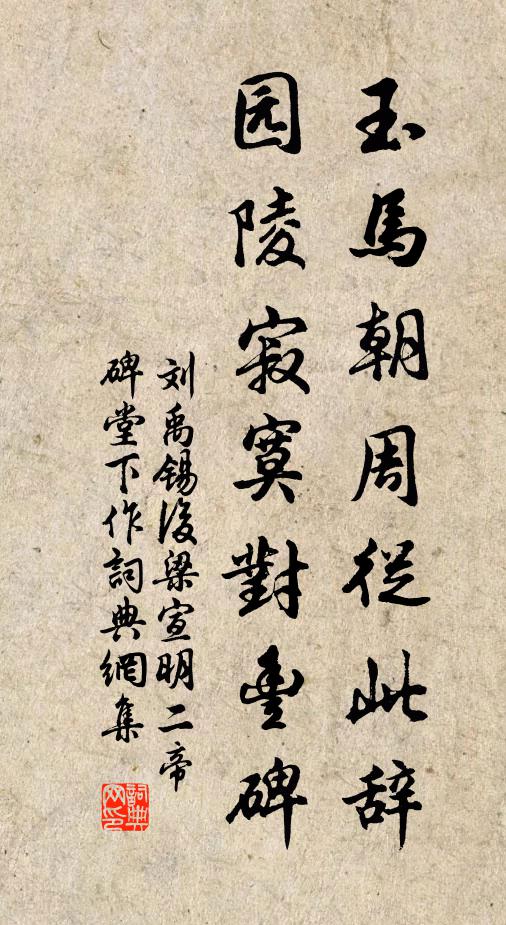 玉馬朝周從此辞
园陵寂寞對豊碑
刘禹锡後梁宣明二帝
碑堂下作詞典網集
詞典
网印